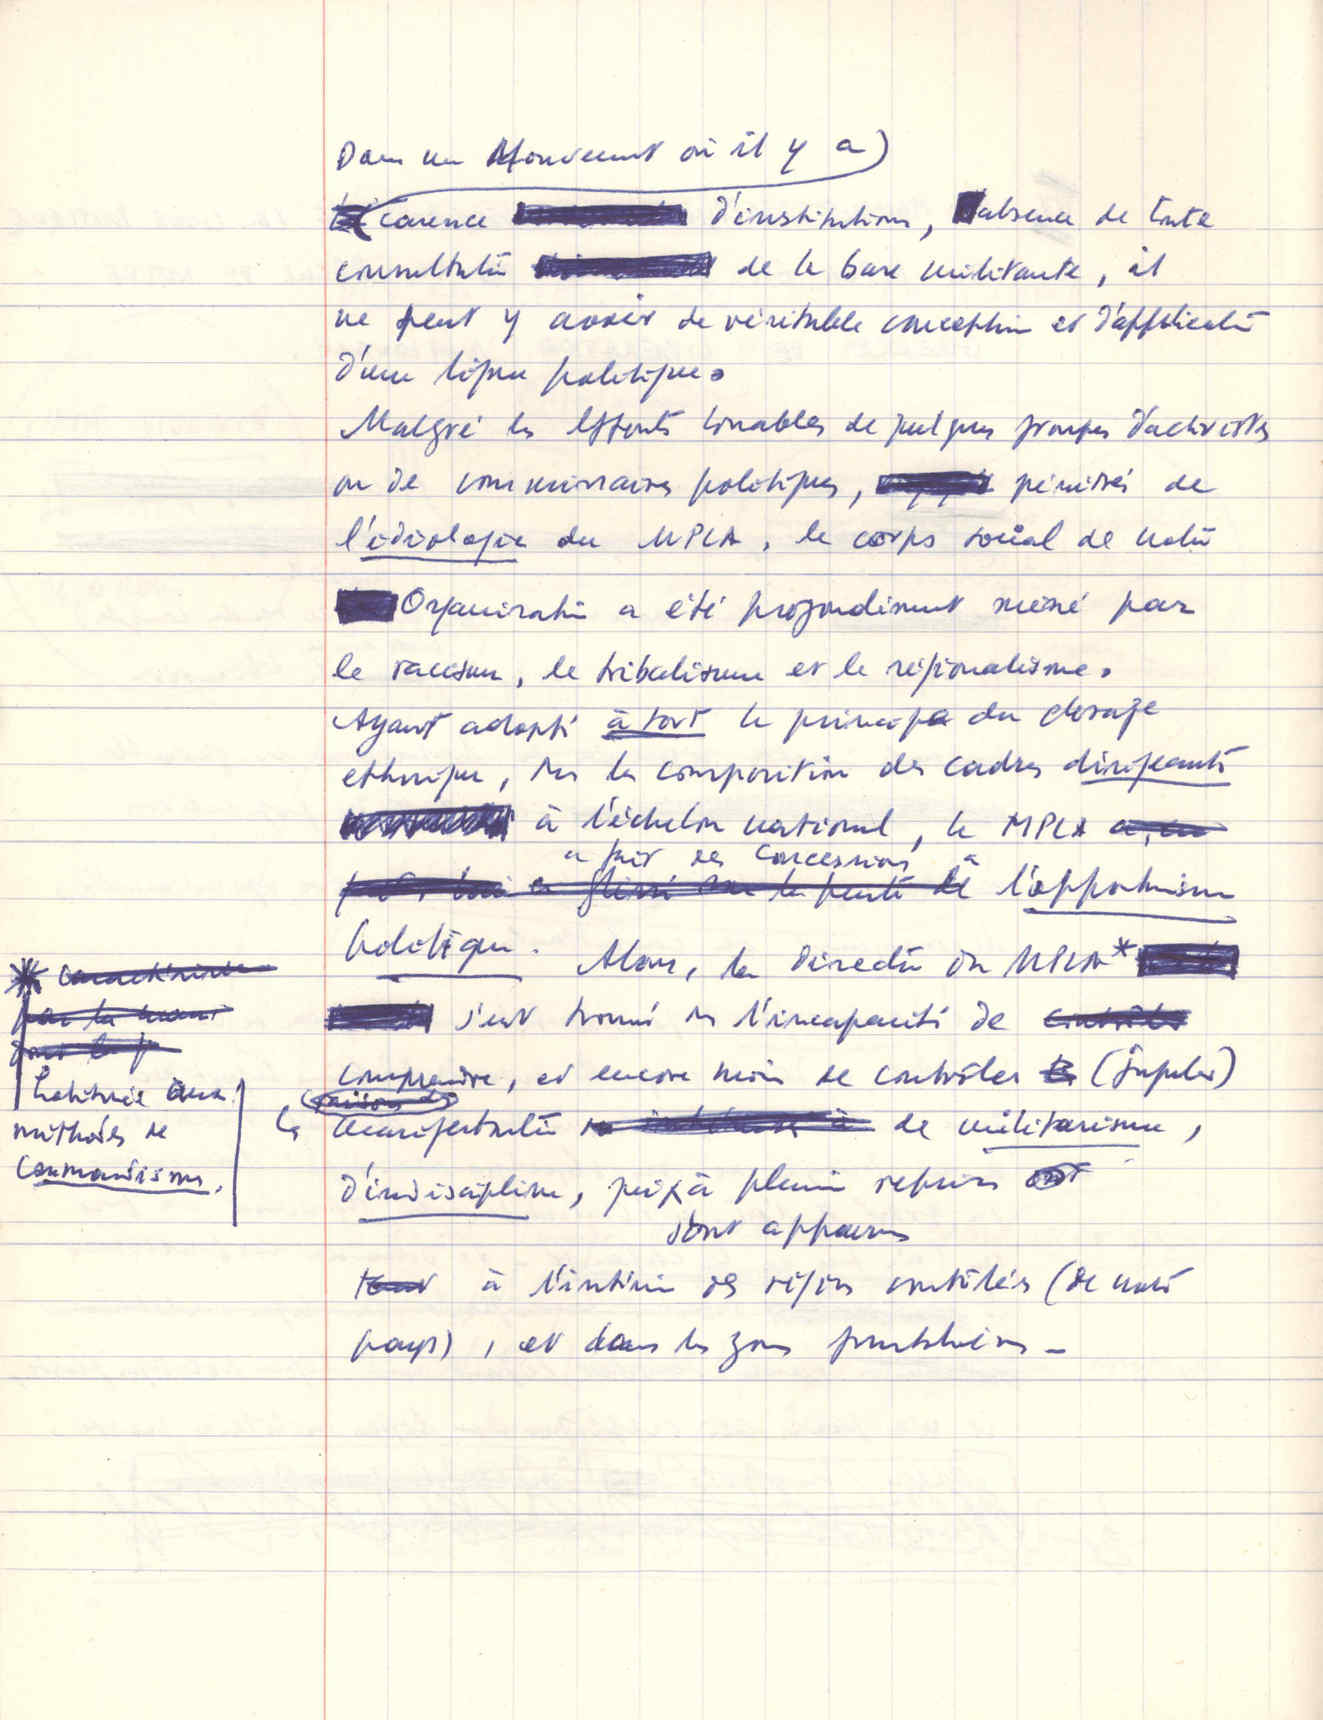 Dans un Mouvement où il y a)
carence d'institutions, absence de toute
consultation de la base militante, il
ne peut y avoir de véritable conception et d'application
d'une ligne politique.
Malgré les efforts louables de quelques groupes d'activistes
ou de commissaires politiques, pénétrés de
l'idéologie du MPLA, le corps social de notre
Organisation a été profondément miné par
le racisme, le tribalisme et le régionalisme.
Ayant adopté à tort le principe du dosage
ethnique, ds la composition des cadres dirigeants
à l'échelon national, le MPLA
a fait des concessions à
l'opportunisme
politique. Alors, la Direction du MPLA*
s'est trouvée ds l'incapacité de contrôler
comprendre, et encore moins de contrôler (juguler)
les manifestations de militarisme,
d'indiscipline, qui, à plein
sont apparues
à l'intérieur des régions contrôlées (de notre
pays), et dans les zones frontalières -
* caractérisée
par la
habituée aux
méthodes de
commandisme.